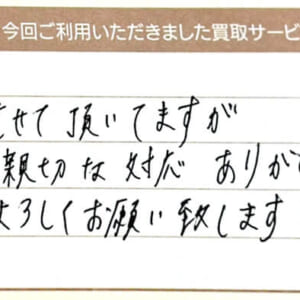 今回ご利用いただきました買取サービ
させて頂いてますが
親切な対応 ありが
よろしくお願い致します